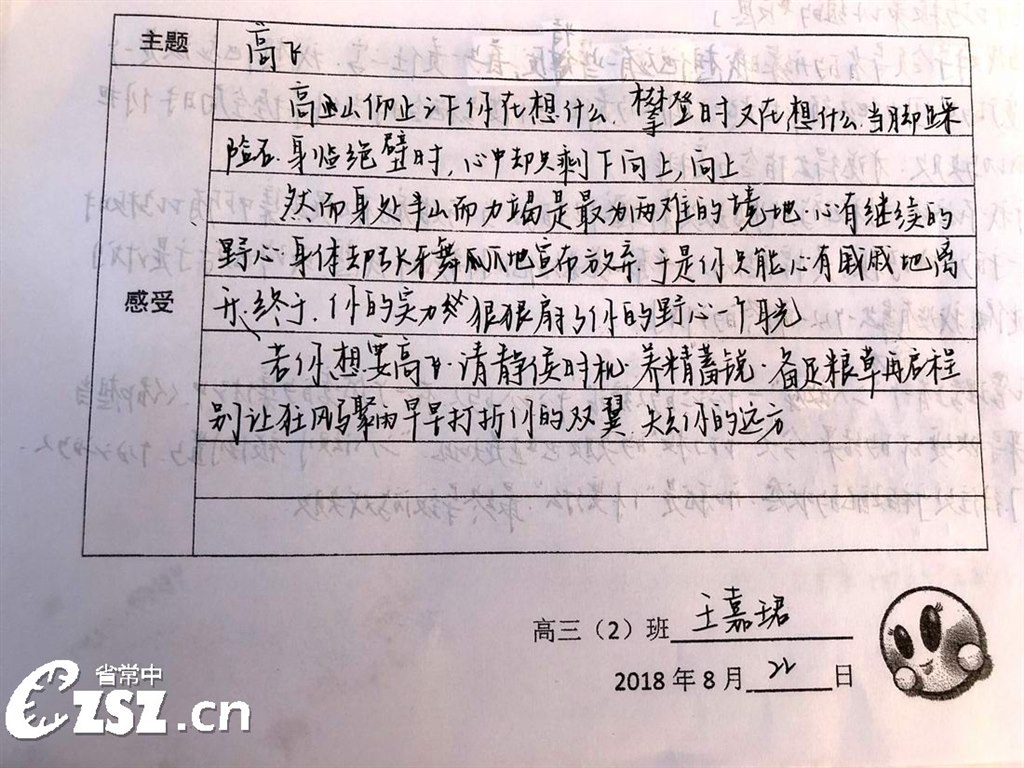 主题
高飞
感受
高山仰止之下你在想什么.攀登时又在想什么.当脚踩
险石.身临绝壁时,心中却只剩下向上,向上
然而身处半山而力竭是最为两难的境地.心有继续的
野心身体却张牙舞爪地宣布放弃.于是你只能心有戚戚地离
开.终于.你的实力狠狠扇了你的野心一个耳光
若你想要高飞.请静候时机.养精蓄锐.备足粮草再启程
别让狂风骤雨早早打折你的双翼.失去你的远方
高三(2)班 王嘉珺
2018年8月 22 日
省常中
CZSZ.cn